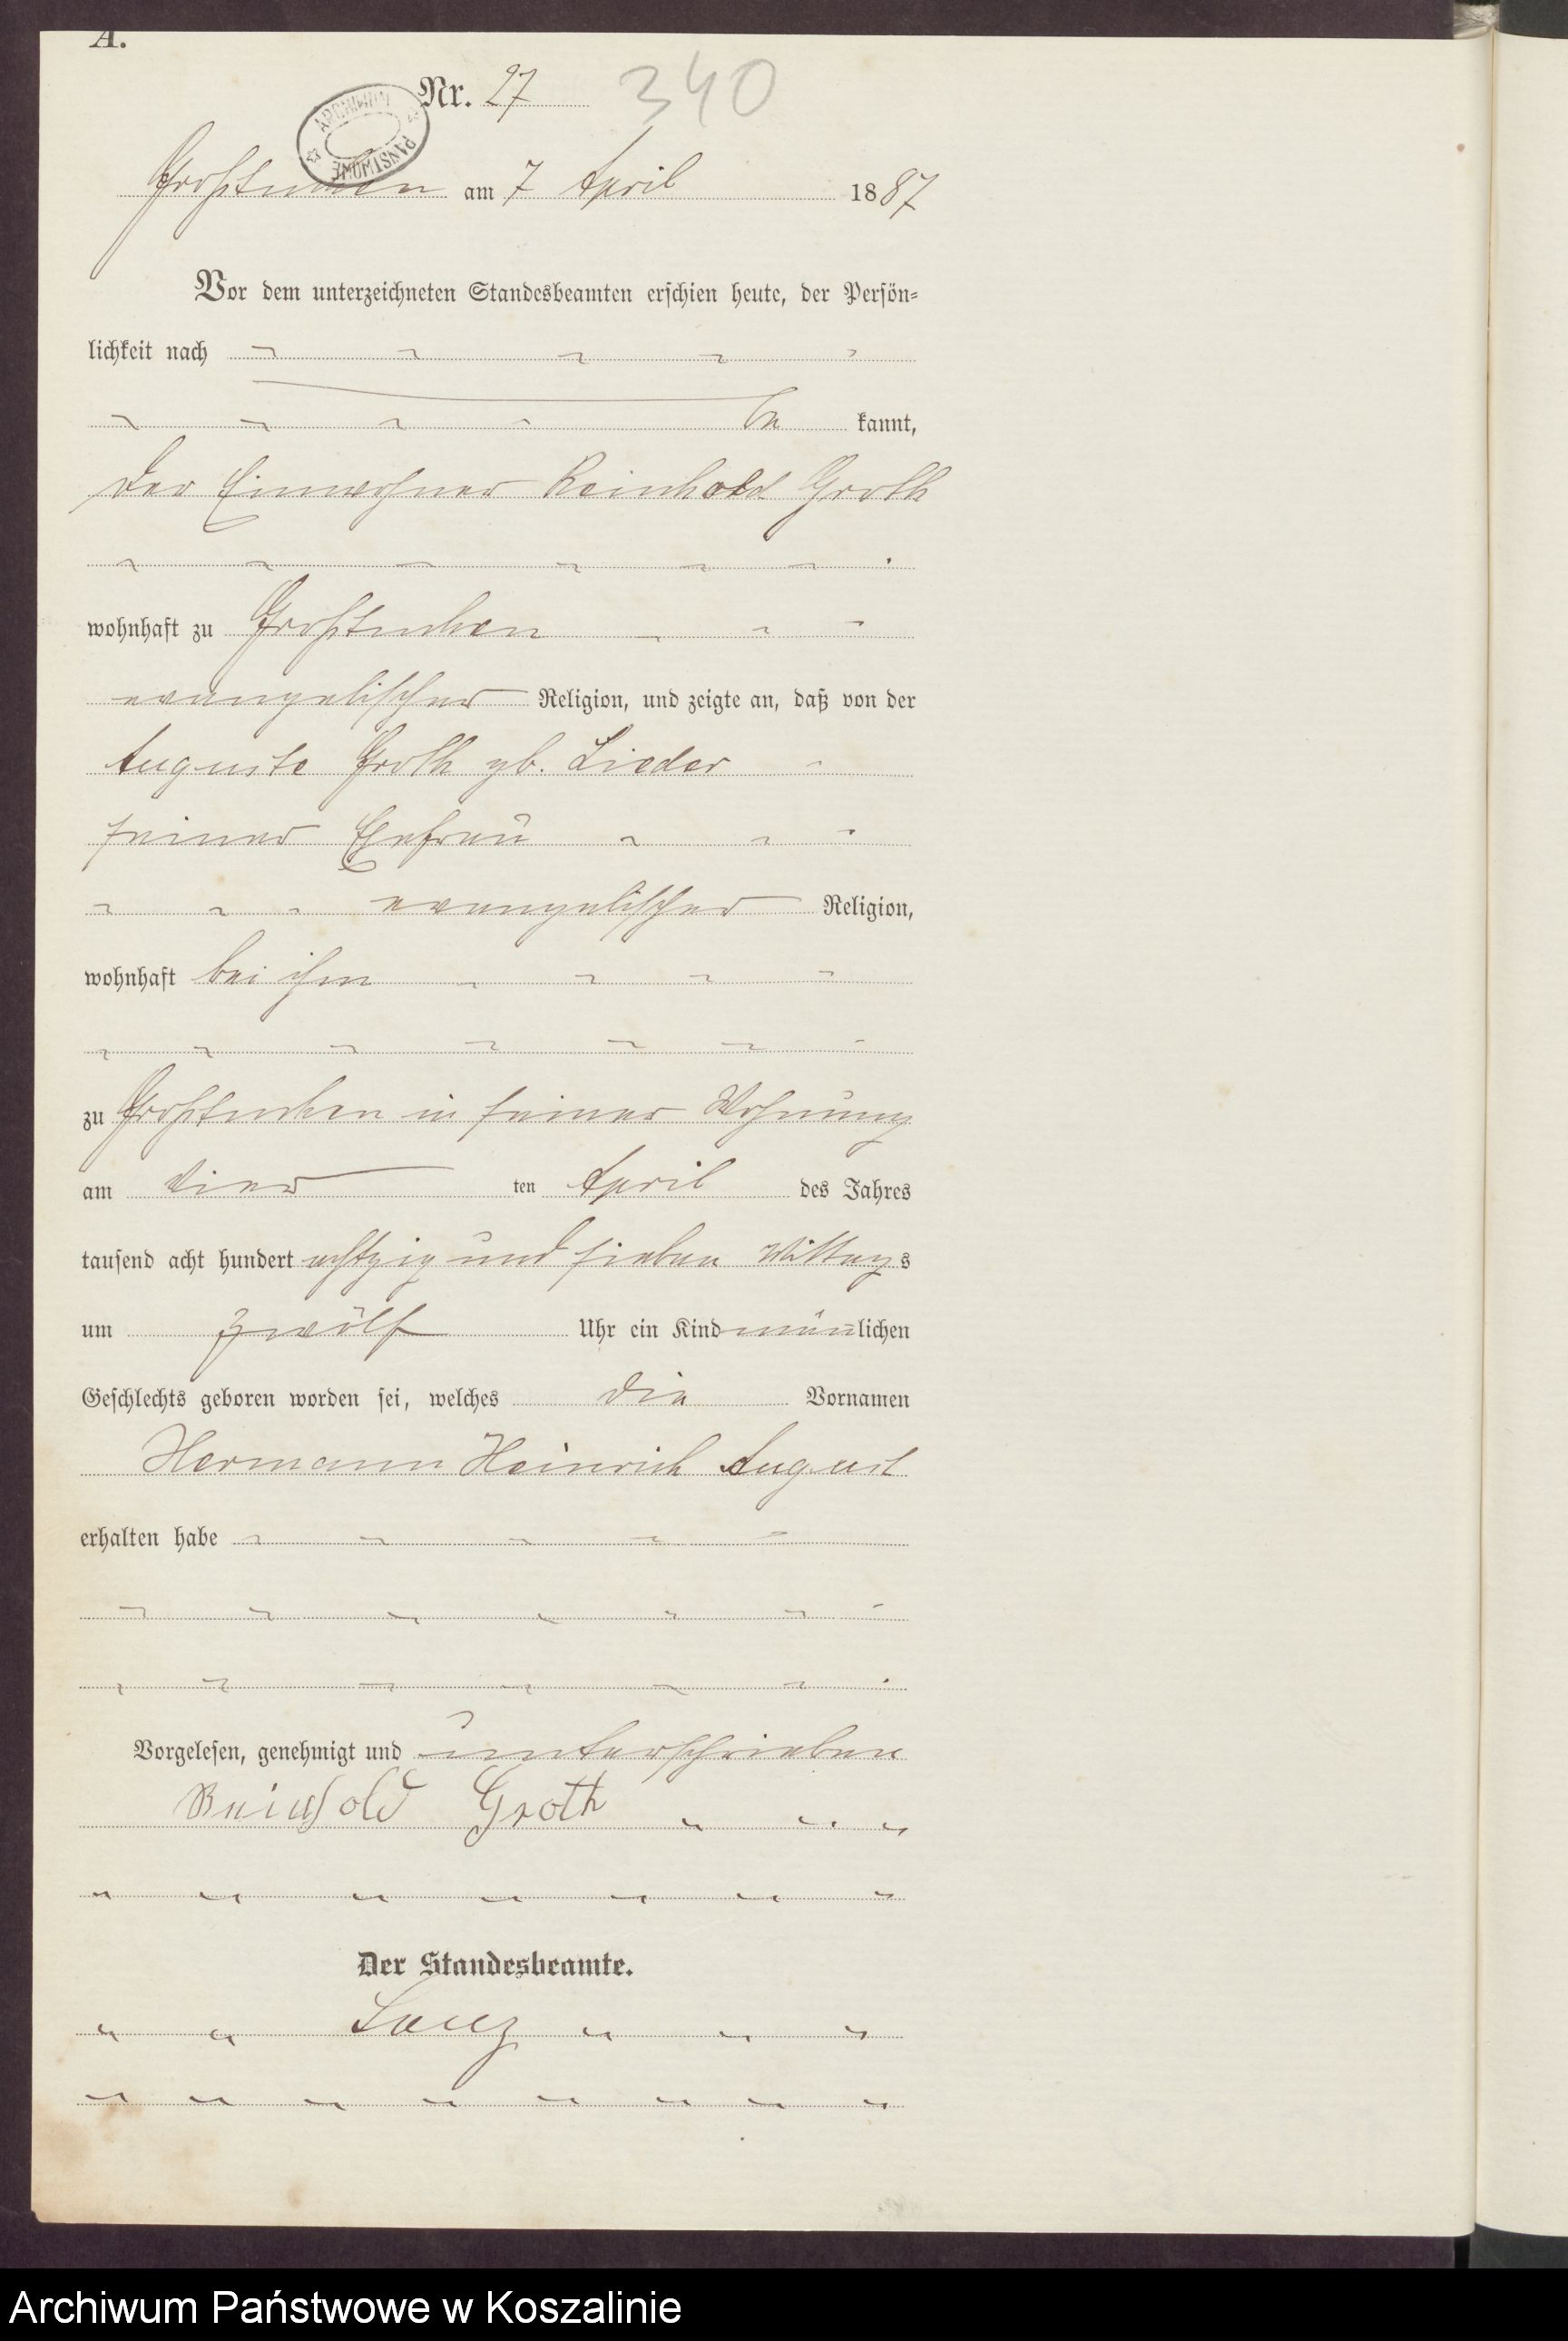 A.
Nr. 27 340
ARCHIWUM PAŃSTWOWE
Großtuchen am 7 April 1887
Vor dem unterzeichneten Standesbeamten erschien heute, der Persön=
lichkeit nach
be kannt,
der Einwohner Reinhold Groth
wohnhaft zu Großtuchen
evangelischer Religion, und zeigte an, daß von der
Auguste Groth gb. Lieder
seiner Ehefrau
evangelischer Religion,
wohnhaft bei ihm
zu Großtuchen in seiner Wohnung
am vier ten April des Jahres
tausend acht hundert achtzig und sieben Mittags
um zwölf Uhr ein Kind männlichen
Geschlechts geboren worden sei, welches die Vornamen
Hermann Heinrich August
erhalten habe
Vorgelesen, genehmigt und unterschrieben
Reinhold Groth
Der Standesbeamte.
Archiwum Państwowe w Koszalinie